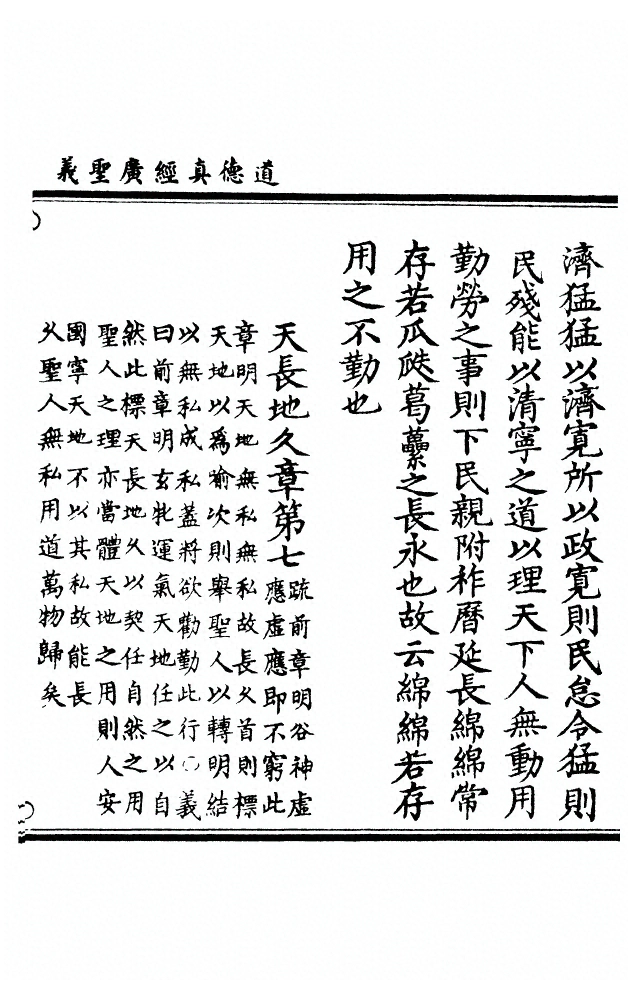 道德真經廣聖義
濟猛猛以濟寛所以政寛則民怠令猛則
民殘能以清寧之道以理天下人無動用
勤勞之事則下民親附祚曆延長綿綿常
存若瓜瓞葛虆之長永也故云綿綿若存
用之不勤也
天長地久章第七
疏前章明谷神虛
應虛應即不窮此
章明天地無私無私故長久首則標
天地以為喻次則舉聖人以轉明結
以無私成私蓋將欲勸勤此行○義
曰前章明玄牝運氣天地任之以自
然此標天長地久以契任自然之用
聖人之理亦當體天地之用則人安
國寧天地不以其私故能長
久聖人無私用道萬物歸矣